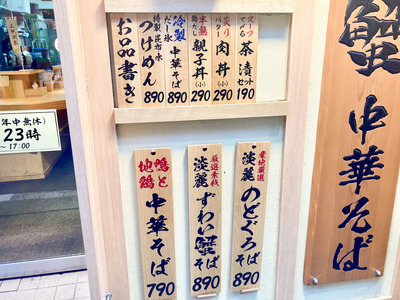 蟹
中華そば
スープ
茶漬
セット
190
炙り
バター
肉丼
(小)
290
半熟
鶏だし
親子丼
(小)
290
冷製
だし氷
中華そば
890
特製昆布水
つけめん
890
お品書き
素地厳選
淡麗
のどぐろそば
890
厳選素材
淡麗
ずわい蟹そば
890
鴨と
地鶏
中華そば
790
年中無休)
23時
~17:00